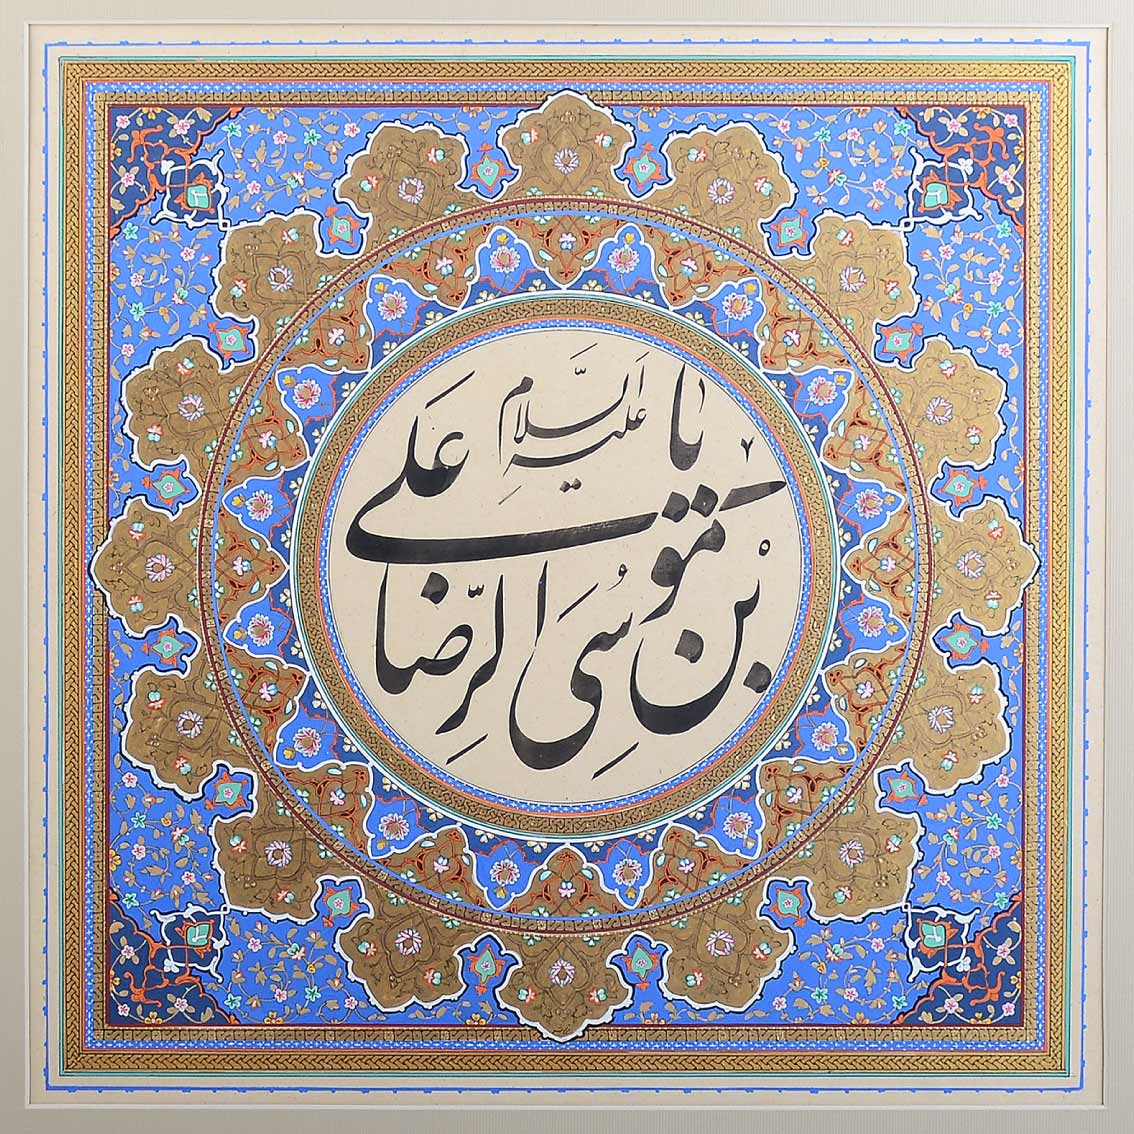 یا علی
بن موسی الرّضا
علیه السّلام